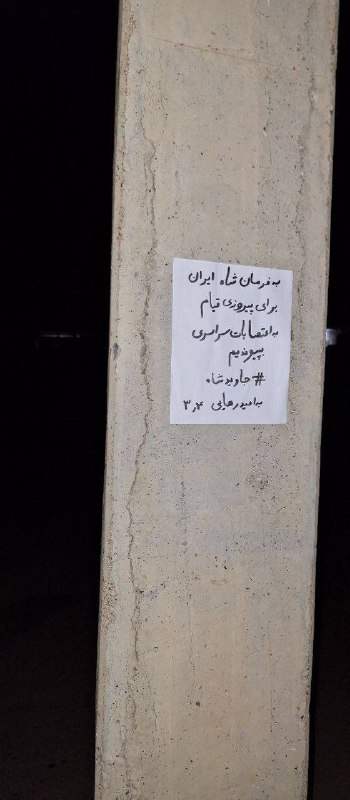 به فرمان شاه ایران
برای پیروزی قیام
به اعتصابات سراسری
بپیوندیم
#جاوید شاه
به امید رهایی ۳٫۴